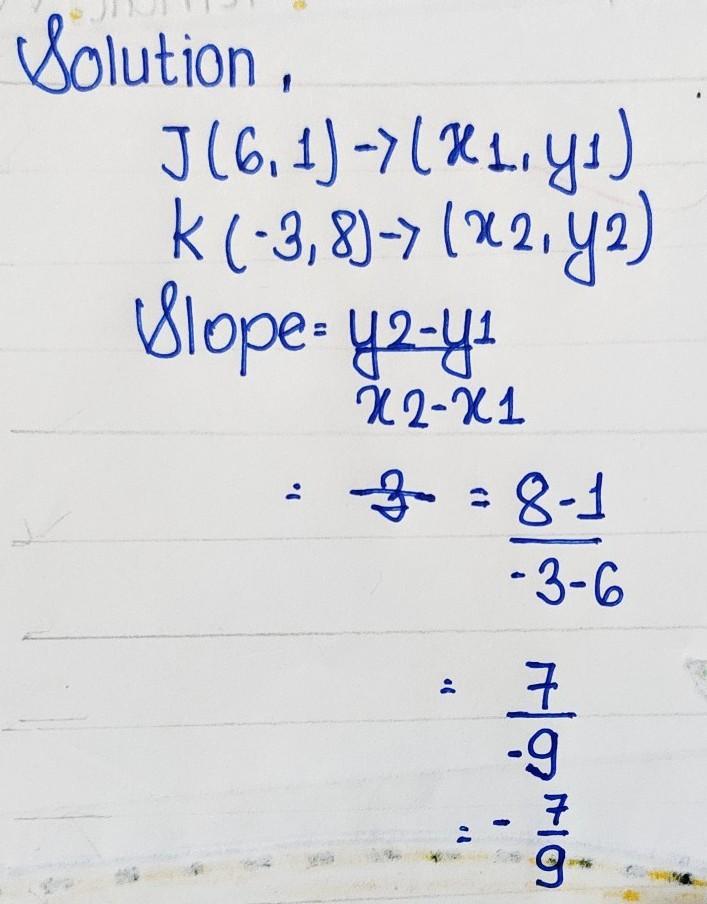 Solution,
J(6,1)->(x1,y1)
K(-3,8)->(x2,y2)
Slope= y2-y1
x2-x1
= = 8-1
-3-6
= 7
-9
= - 7
9